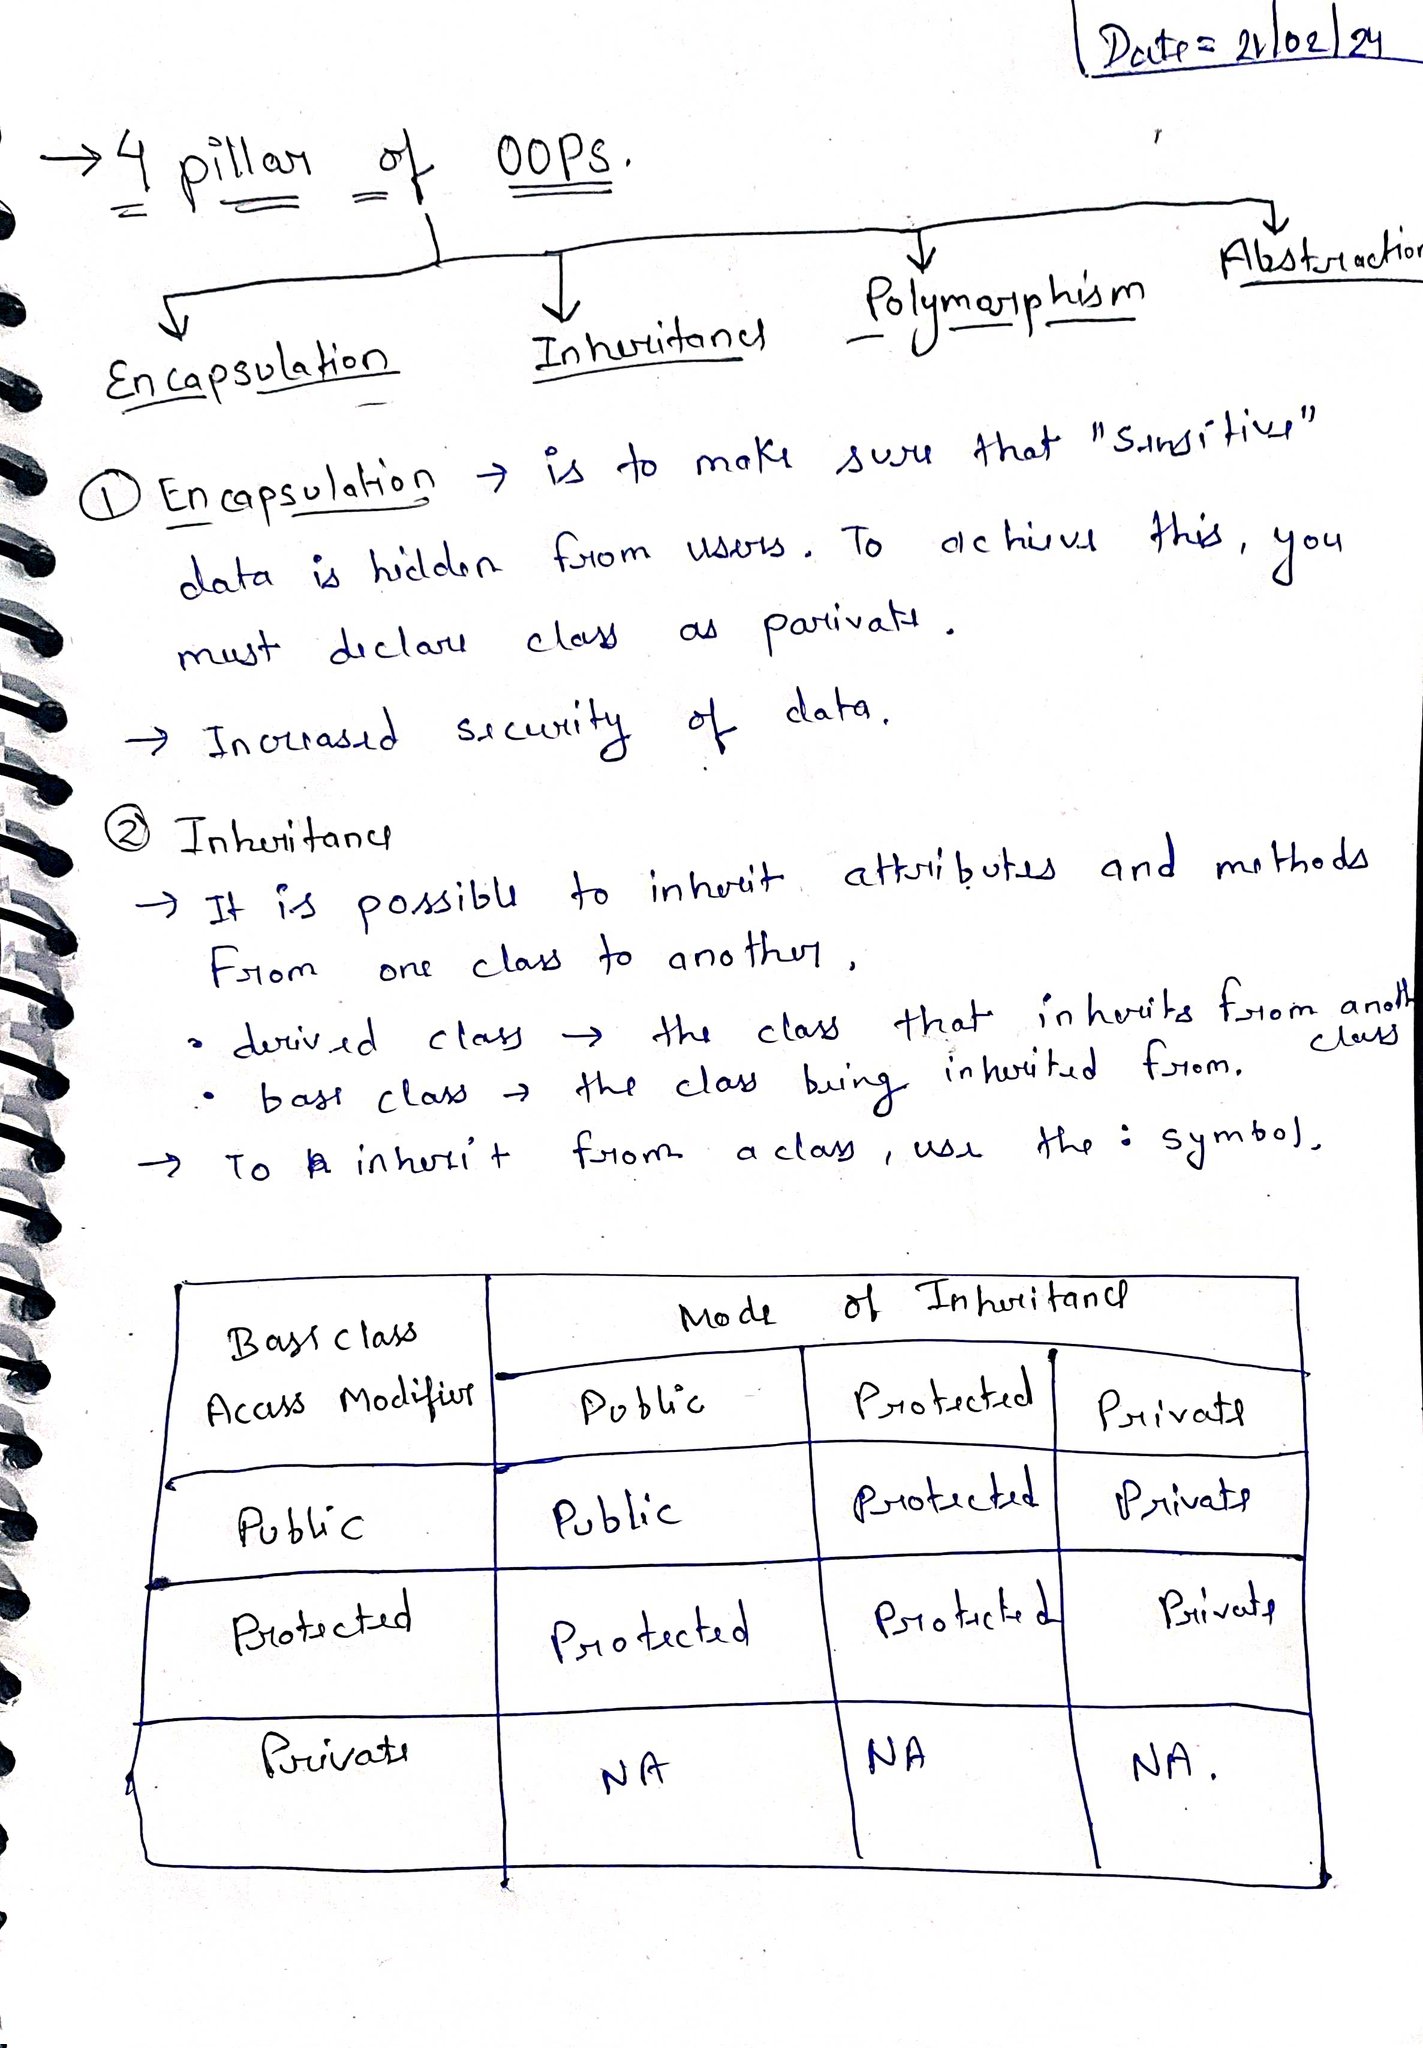 Date = 21/02/24
→ 4 pillar of OOPS.
Encapsulation Inheritance Polymorphism Abstraction
① Encapsulation → is to make sure that "Sensitive"
data is hidden from users. To achieve this, you
must declare class as parivate.
→ Increased security of data.
② Inheritance
→ It is possible to inherit attributes and methods
From one class to another,
• derived class → the class that inherits from anoth
class
• base class → the class being inherited from.
→ To inherit from a class, use the : symbol.
Base class Mode of Inheritance
Acass Modifier Public Protected Private
Public Public Protected Private
Protected Protected Protected Private
Private NA NA NA.